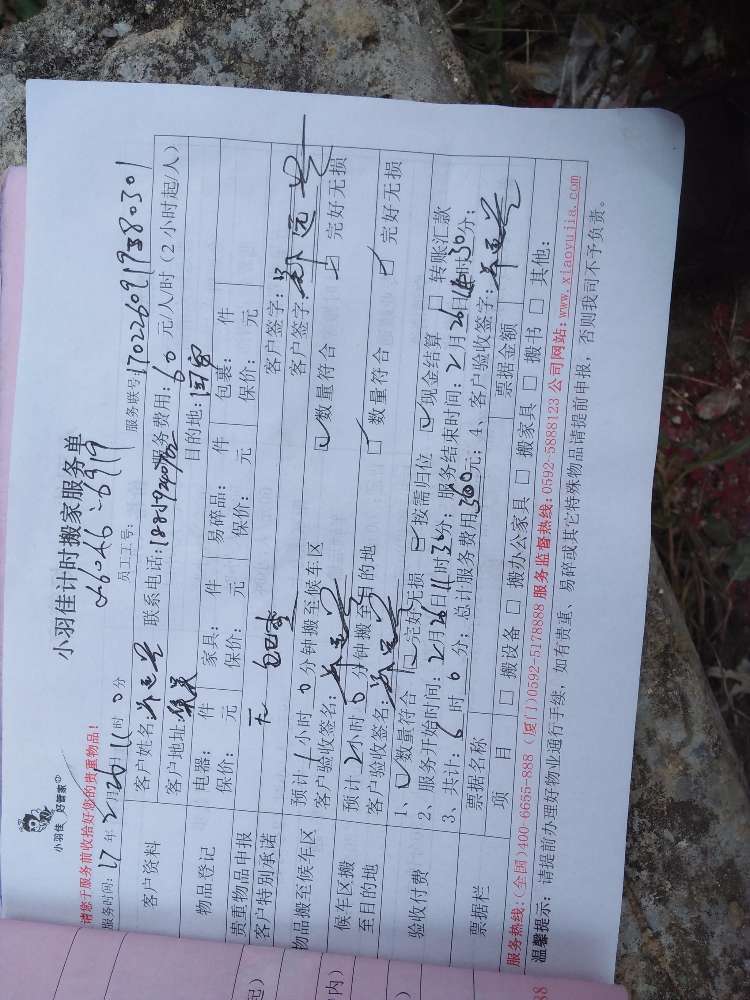 小羽佳 好管家
小羽佳计时搬家服务单
26046-8919
请您于服务前收拾好您的贵重物品!
服务时间: 17年2月26日11时0分 员工工号: 服务账号:1702260919380301
客户资料
客户姓名: 联系电话: 服务费用:60元/人/时(2小时起/人)
客户地址: 目的地:
物品登记
电器: 件 家具: 件 易碎品: 件 包裹: 件
保价: 元 保价: 元 保价: 元 保价: 元
贵重物品申报 无 客户签字:
客户特别承诺 客户签字:
物品搬至候车区
预计1小时0分钟搬至候车区 数量符合 完好无损
客户验收签名:
候车区搬至目的地
预计2小时0分钟搬至目的地 数量符合 完好无损
客户验收签名:
验收付费
1、数量符合 完好无损 按需归位 现金结算 转账汇款
2、服务开始时间:2月26日11时3分; 服务结束时间:2月26日 时30分;
3、共计:6时0分; 总计服务费用360元; 4、客户验收签字:
票据栏
票据名称 票据金额
项目 搬设备 搬办公家具 搬家具 搬书 其他:
服务热线:(全国)400-6655-888 (厦门)0592-5178888 服务监督热线:0592-5888123 公司网站:www.xiaoyujia.com
温馨提示: 请提前办理好物业通行手续,如有贵重、易碎或其它特殊物品请提前申报,否则我司不予负责。